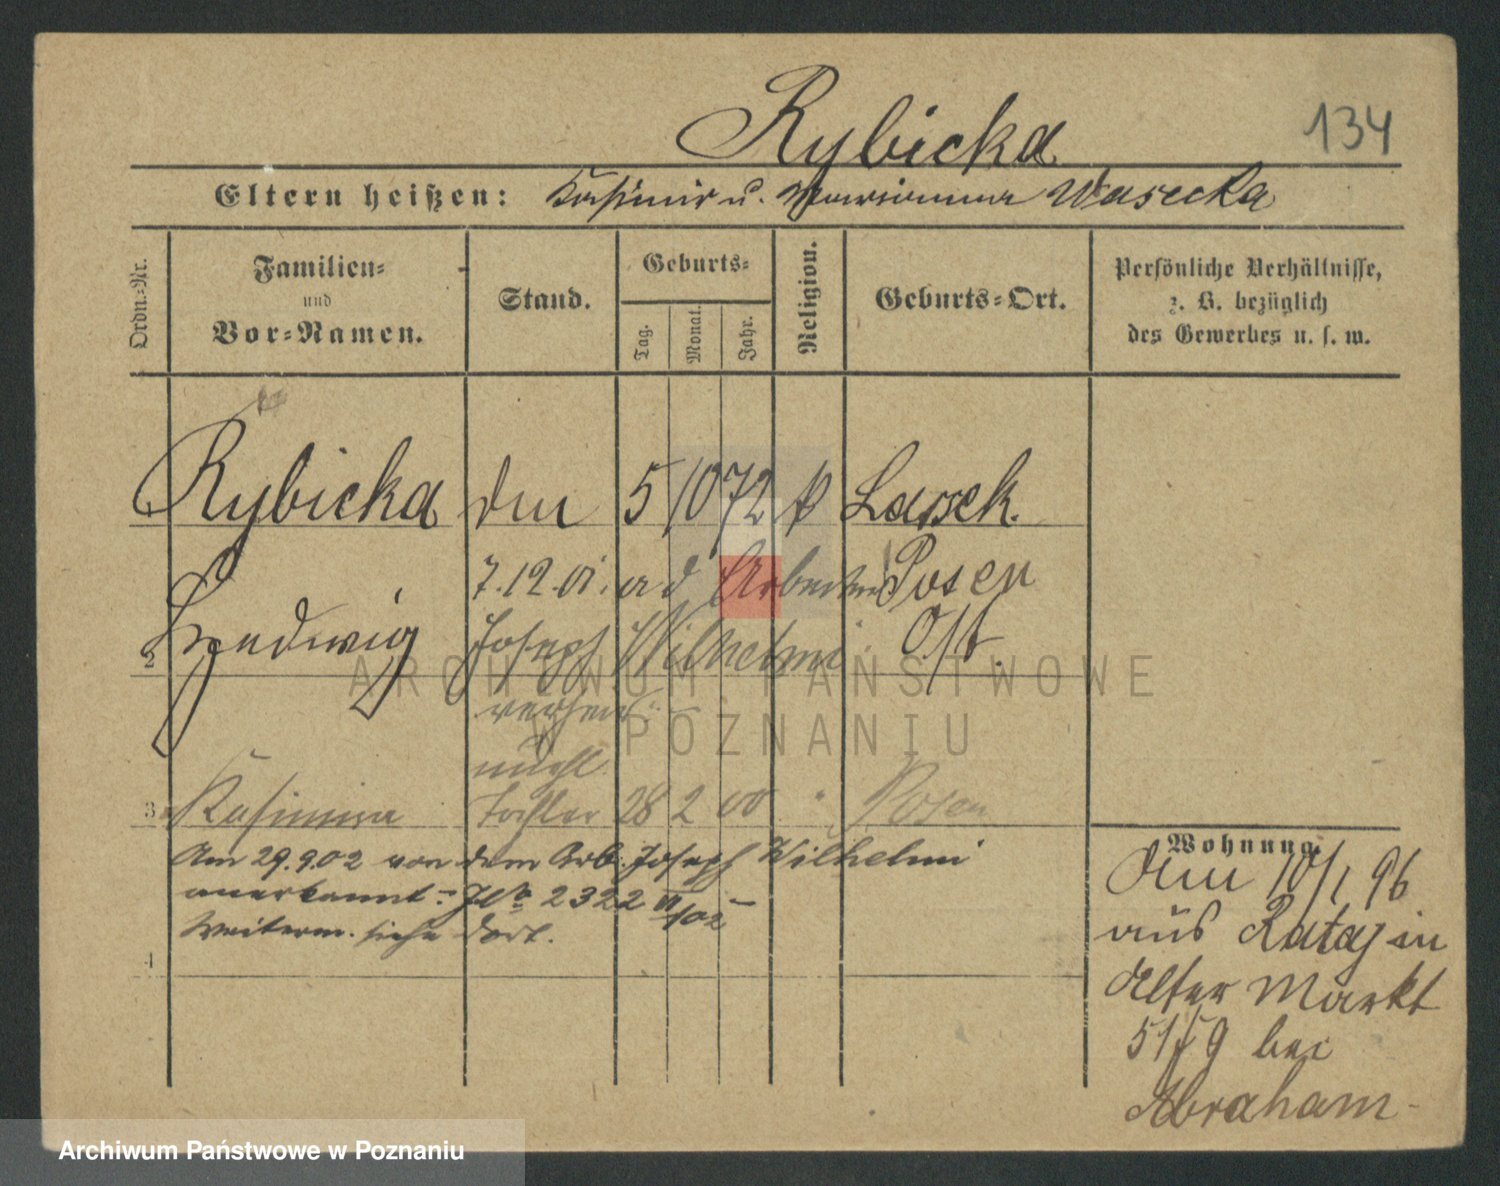 Rybicka
134
Eltern heißen: Kasimir u. Marianna Wasecka
Ordn.-Nr.
Familien-
und
Vor-Namen.
Stand.
Geburts-
Tag.
Monat.
Jahr.
Religion.
Geburts-Ort.
Persönliche Verhältnisse,
z. B. bezüglich
des Gewerbes u. s. w.
Rybicka 5 10 72 Lassek.
7.12.01. Posen
2 Hedwig Joseph Wilhelmi Ost.
unehl.
3 Kasimira Tochter 28 2 00 " Posen
Am 29.9.02 von dem Arb. Joseph Wilhelmi
anerkannt. 2322
Weiterm. siehe dort.
4
Wohnung.
Am 10/1 96
aus Rataj in
Alter Markt
51 bei
Abraham-
ARCHIWUM PAŃSTWOWE
W POZNANIU
Archiwum Państwowe w Poznaniu